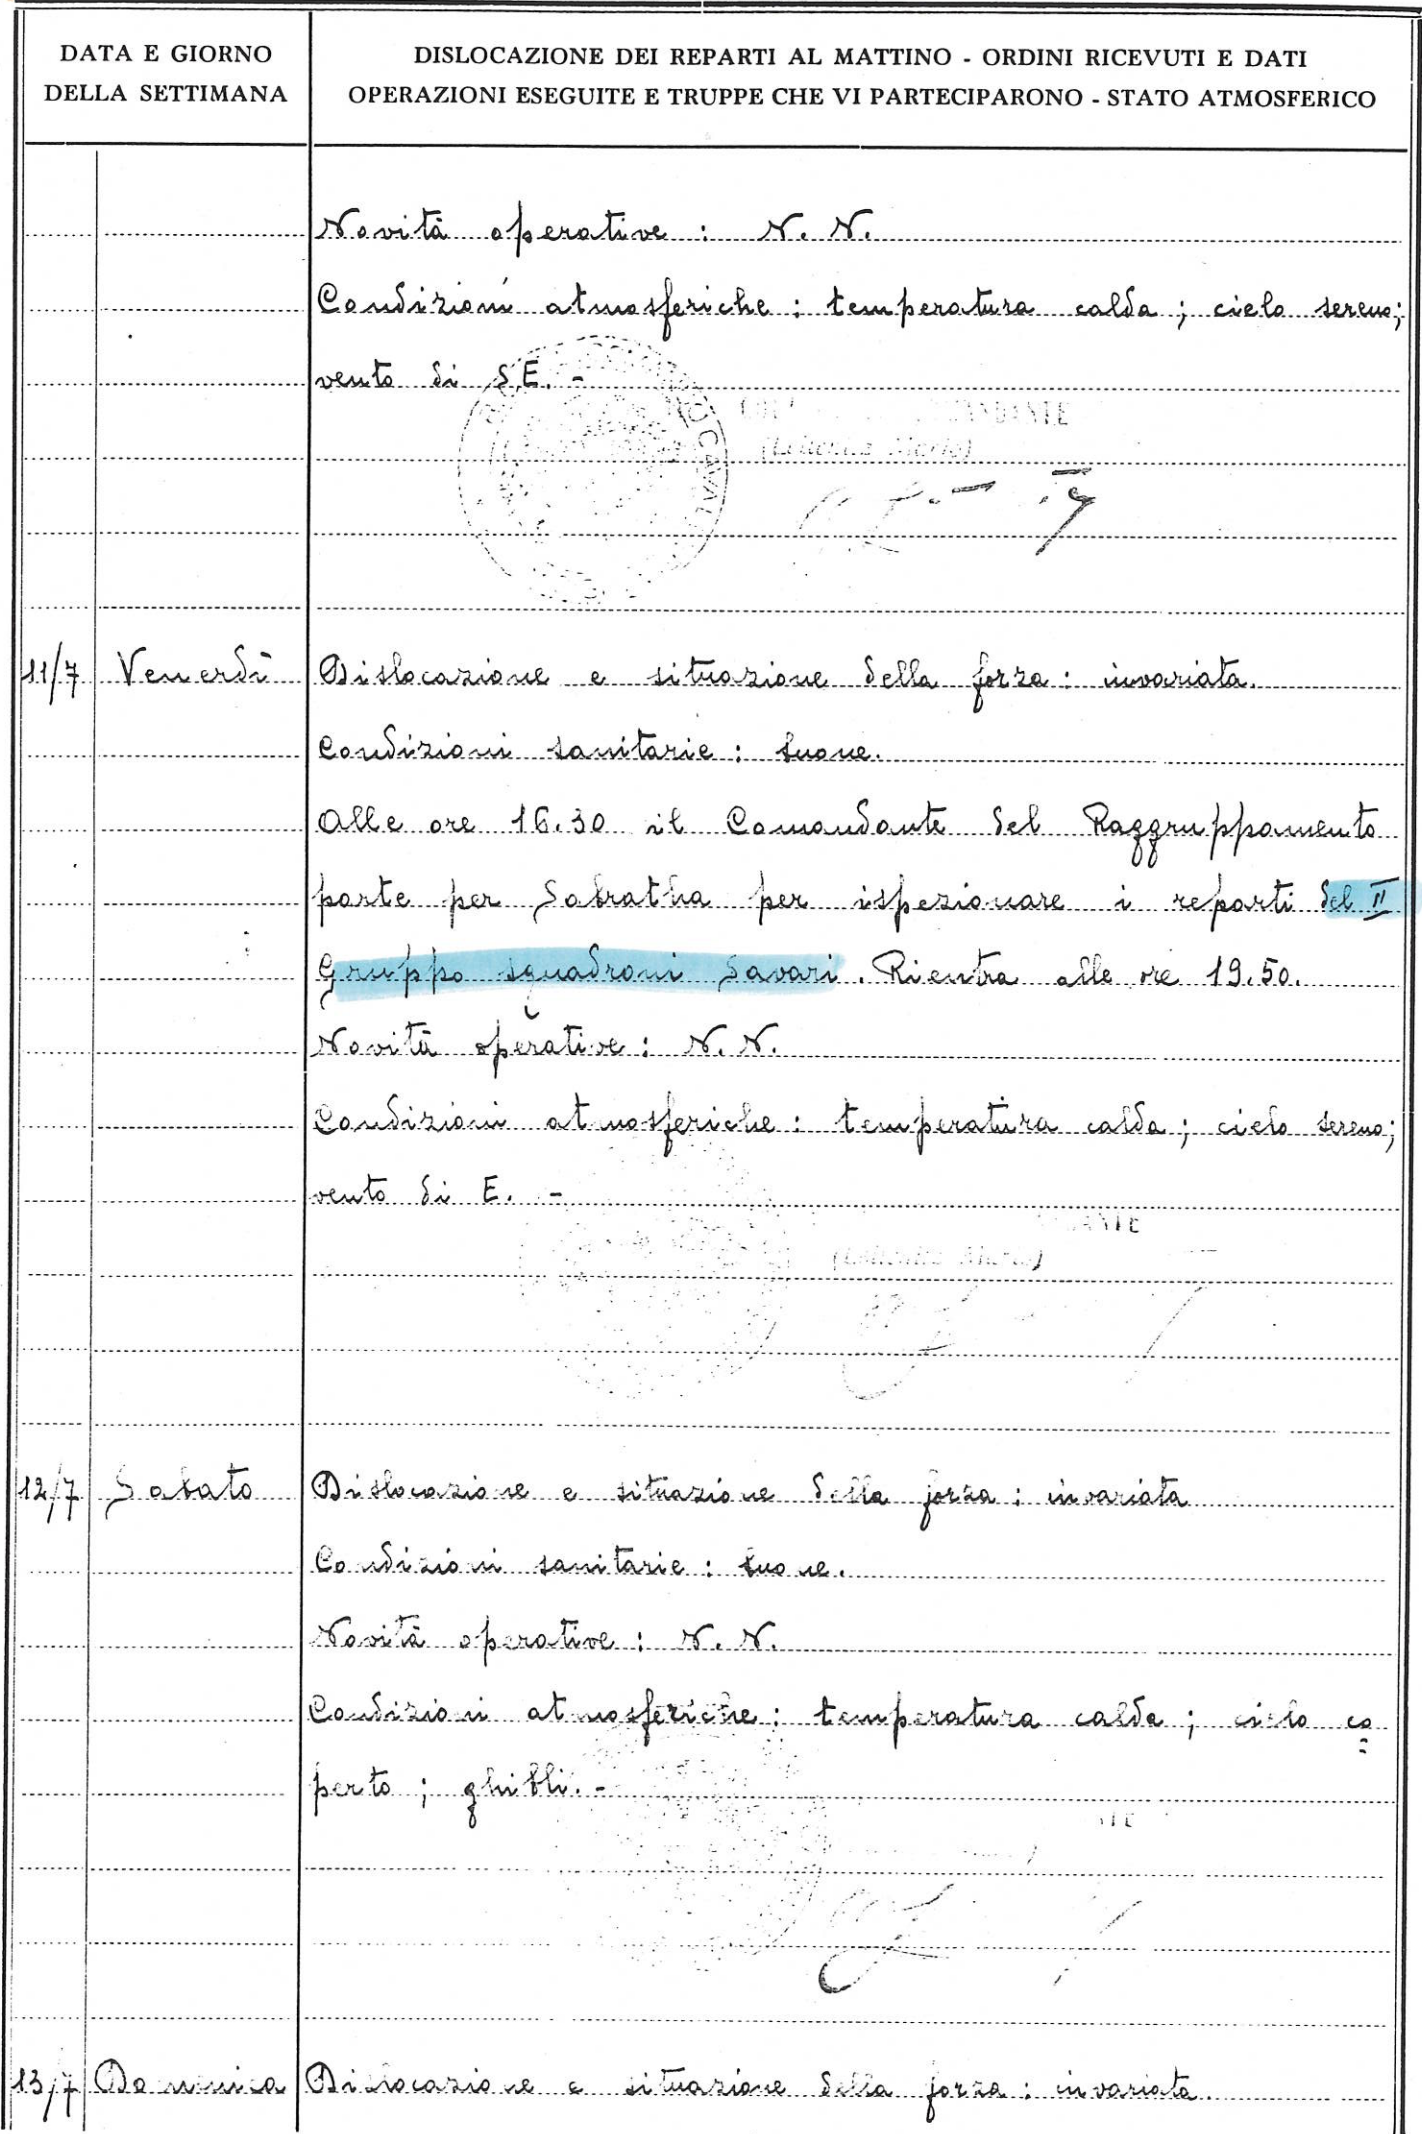 DATA E GIORNO
DELLA SETTIMANA
DISLOCAZIONE DEI REPARTI AL MATTINO - ORDINI RICEVUTI E DATI
OPERAZIONI ESEGUITE E TRUPPE CHE VI PARTECIPARONO - STATO ATMOSFERICO
Novità operative : N. N.
Condizioni atmosferiche : temperatura calda ; cielo sereno;
vento di S.E. -
CAVA
ANDANTE
11/7 Venerdì Dislocazione e situazione della forza : invariata.
Condizioni sanitarie : buone.
Alle ore 16.30 il Comandante del Raggruppamento
parte per Sabratha per ispezionare i reparti del II
Gruppo squadroni Savari. Rientra alle ore 19.50.
Novità operative : N. N.
Condizioni atmosferiche : temperatura calda ; cielo sereno;
vento di E. -
12/7 Sabato Dislocazione e situazione della forza : invariata
Condizioni sanitarie : buone.
Novità operative : N. N.
Condizioni atmosferiche : temperatura calda ; cielo co=
perto ; ghibli. -
13/7 Domenica Dislocazione e situazione della forza : invariata.